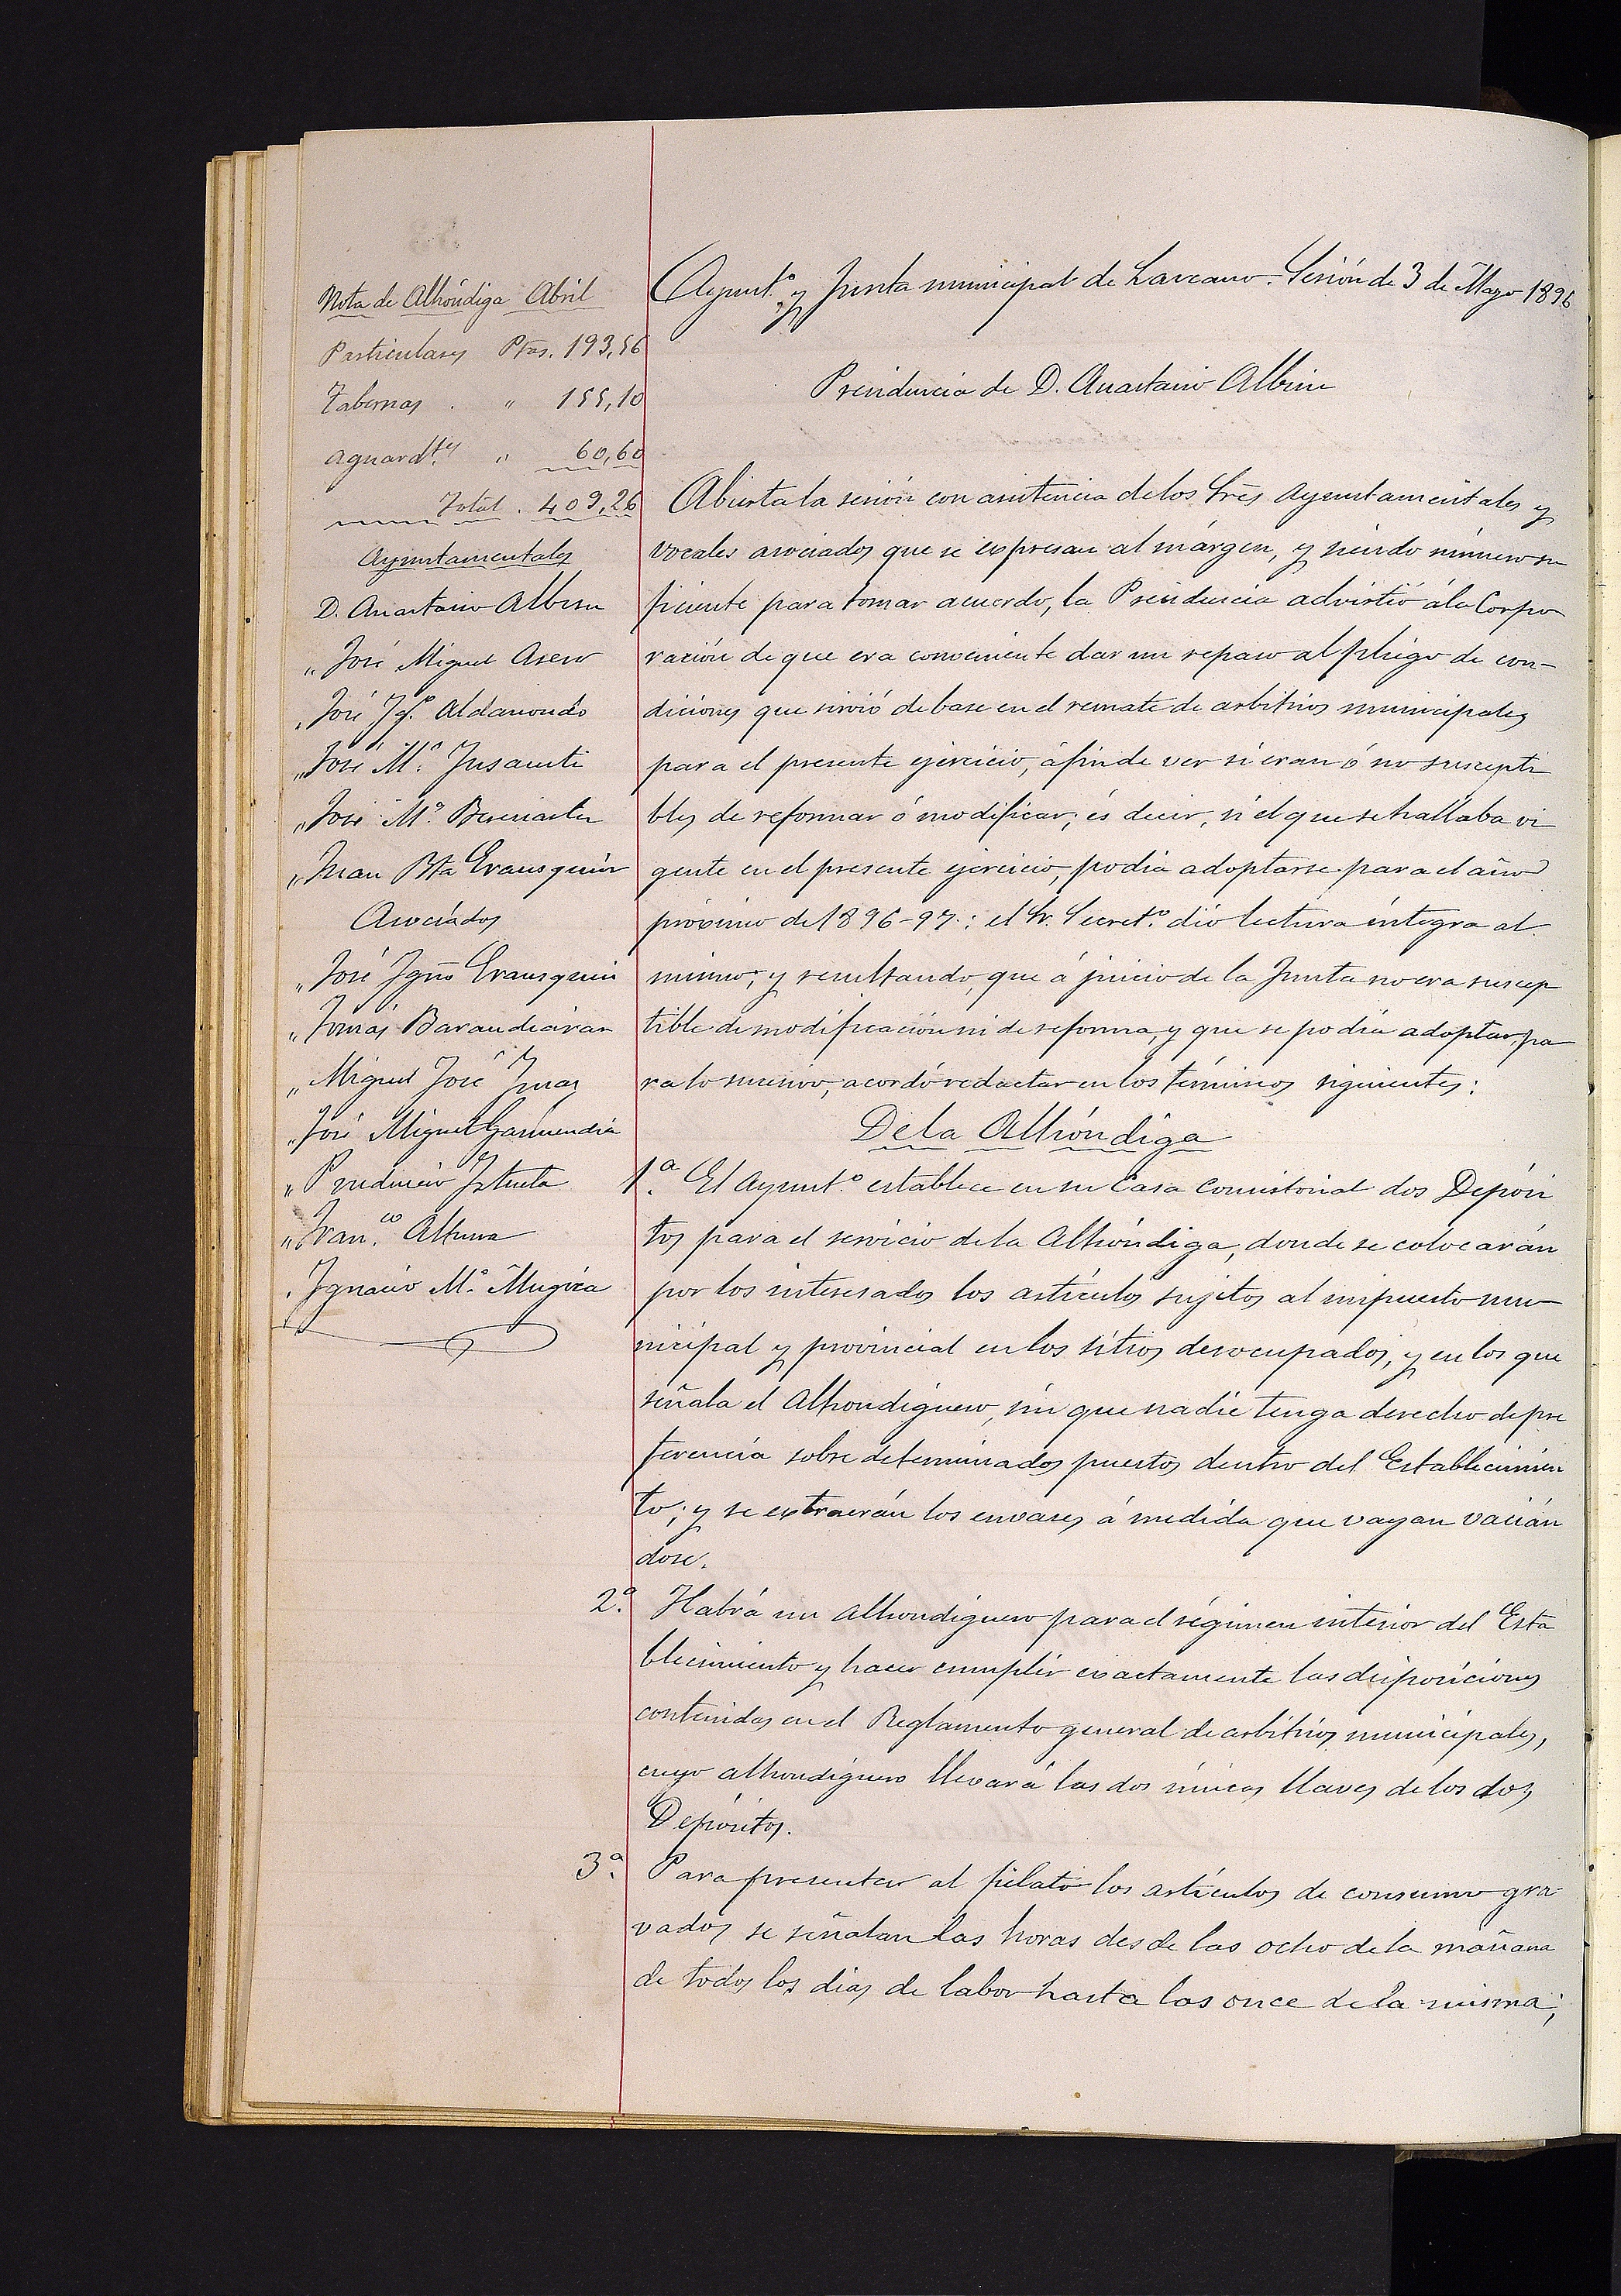 Nota de Alhóndiga Abril
Particulares Ptas. 193,56
Tabernas . " 155,10
Aguardtes " 60,60
Total . 409,26
Ayuntamentales
D. Anastasio Albisu
" José Miguel Asero
" José Igo. Aldanondo
" José Ma. Insausti
" José Ma. Berasiartu
" Juan Bta Erausquin
Asociados
" José Igno Erausquin
" Tomás Barandiaran
" Miguel José
" José Miguel Garmendia
" Prudencio Iztueta
" Franco. Altuna
" Ignacio Ma. Mugica
Ayunto. y Junta municipal de Lazcano. Sesión de 3 de Mayo 1896
Presidencia de D. Anastasio Albisu
Abierta la sesión con asistencia de los Sres Ayuntamentales y
vocales asociados que se expresan al márgen, y siendo número su
ficiente para tomar acuerdo, la Presidencia advirtió á la Corpo
ración de que era conveniente dar un repaso al pliego de con-
diciones que sirvió de base en el remate de arbitrios municipales
para el presente ejercicio, á fin de ver si eran ó no suscepti
bles de reformar ó modificar; és decir, si el que se hallaba vi
gente en el presente ejercicio, podía adoptarse para el año
próximo de 1896-97.: el Sr. Secreto. dió lectura íntegra al
mismo; y resultando, que á juicio de la Junta no era suscep
tible de modificación ni de reforma, y que se podía adoptar pa
ra lo sucesivo, acordó redactar en los términos siguientes:
De la Alhóndiga
1.a El Ayunto. establece en su Casa Consistorial dos Depósi
tos para el servicio de la Alhóndiga, donde se colocarán
por los interesados los artículos sujetos al impuesto mu-
nicipal y provincial en los sitios desocupados, y en los que
señala el Alhondiguero, sin que nadie tenga derecho de pre
ferencia sobre determinados puestos dentro del Establecimien
to; y se extraerán los envases á medida que vayan vacián
dose.
2.a Habrá un alhondiguero para el régimen interior del Esta
blecimiento y hacer cumplir exactamente las disposiciones
contenidas en el Reglamento general de arbitrios municipales,
cuyo alhondiguero llevará las dos únicas llaves de los dos
Depósitos.
3.a Para presentar al fielato los artículos de consumo gra
vados se señalan las horas desde las ocho de la mañana
de todos los dias de labor hasta las once de la misma;